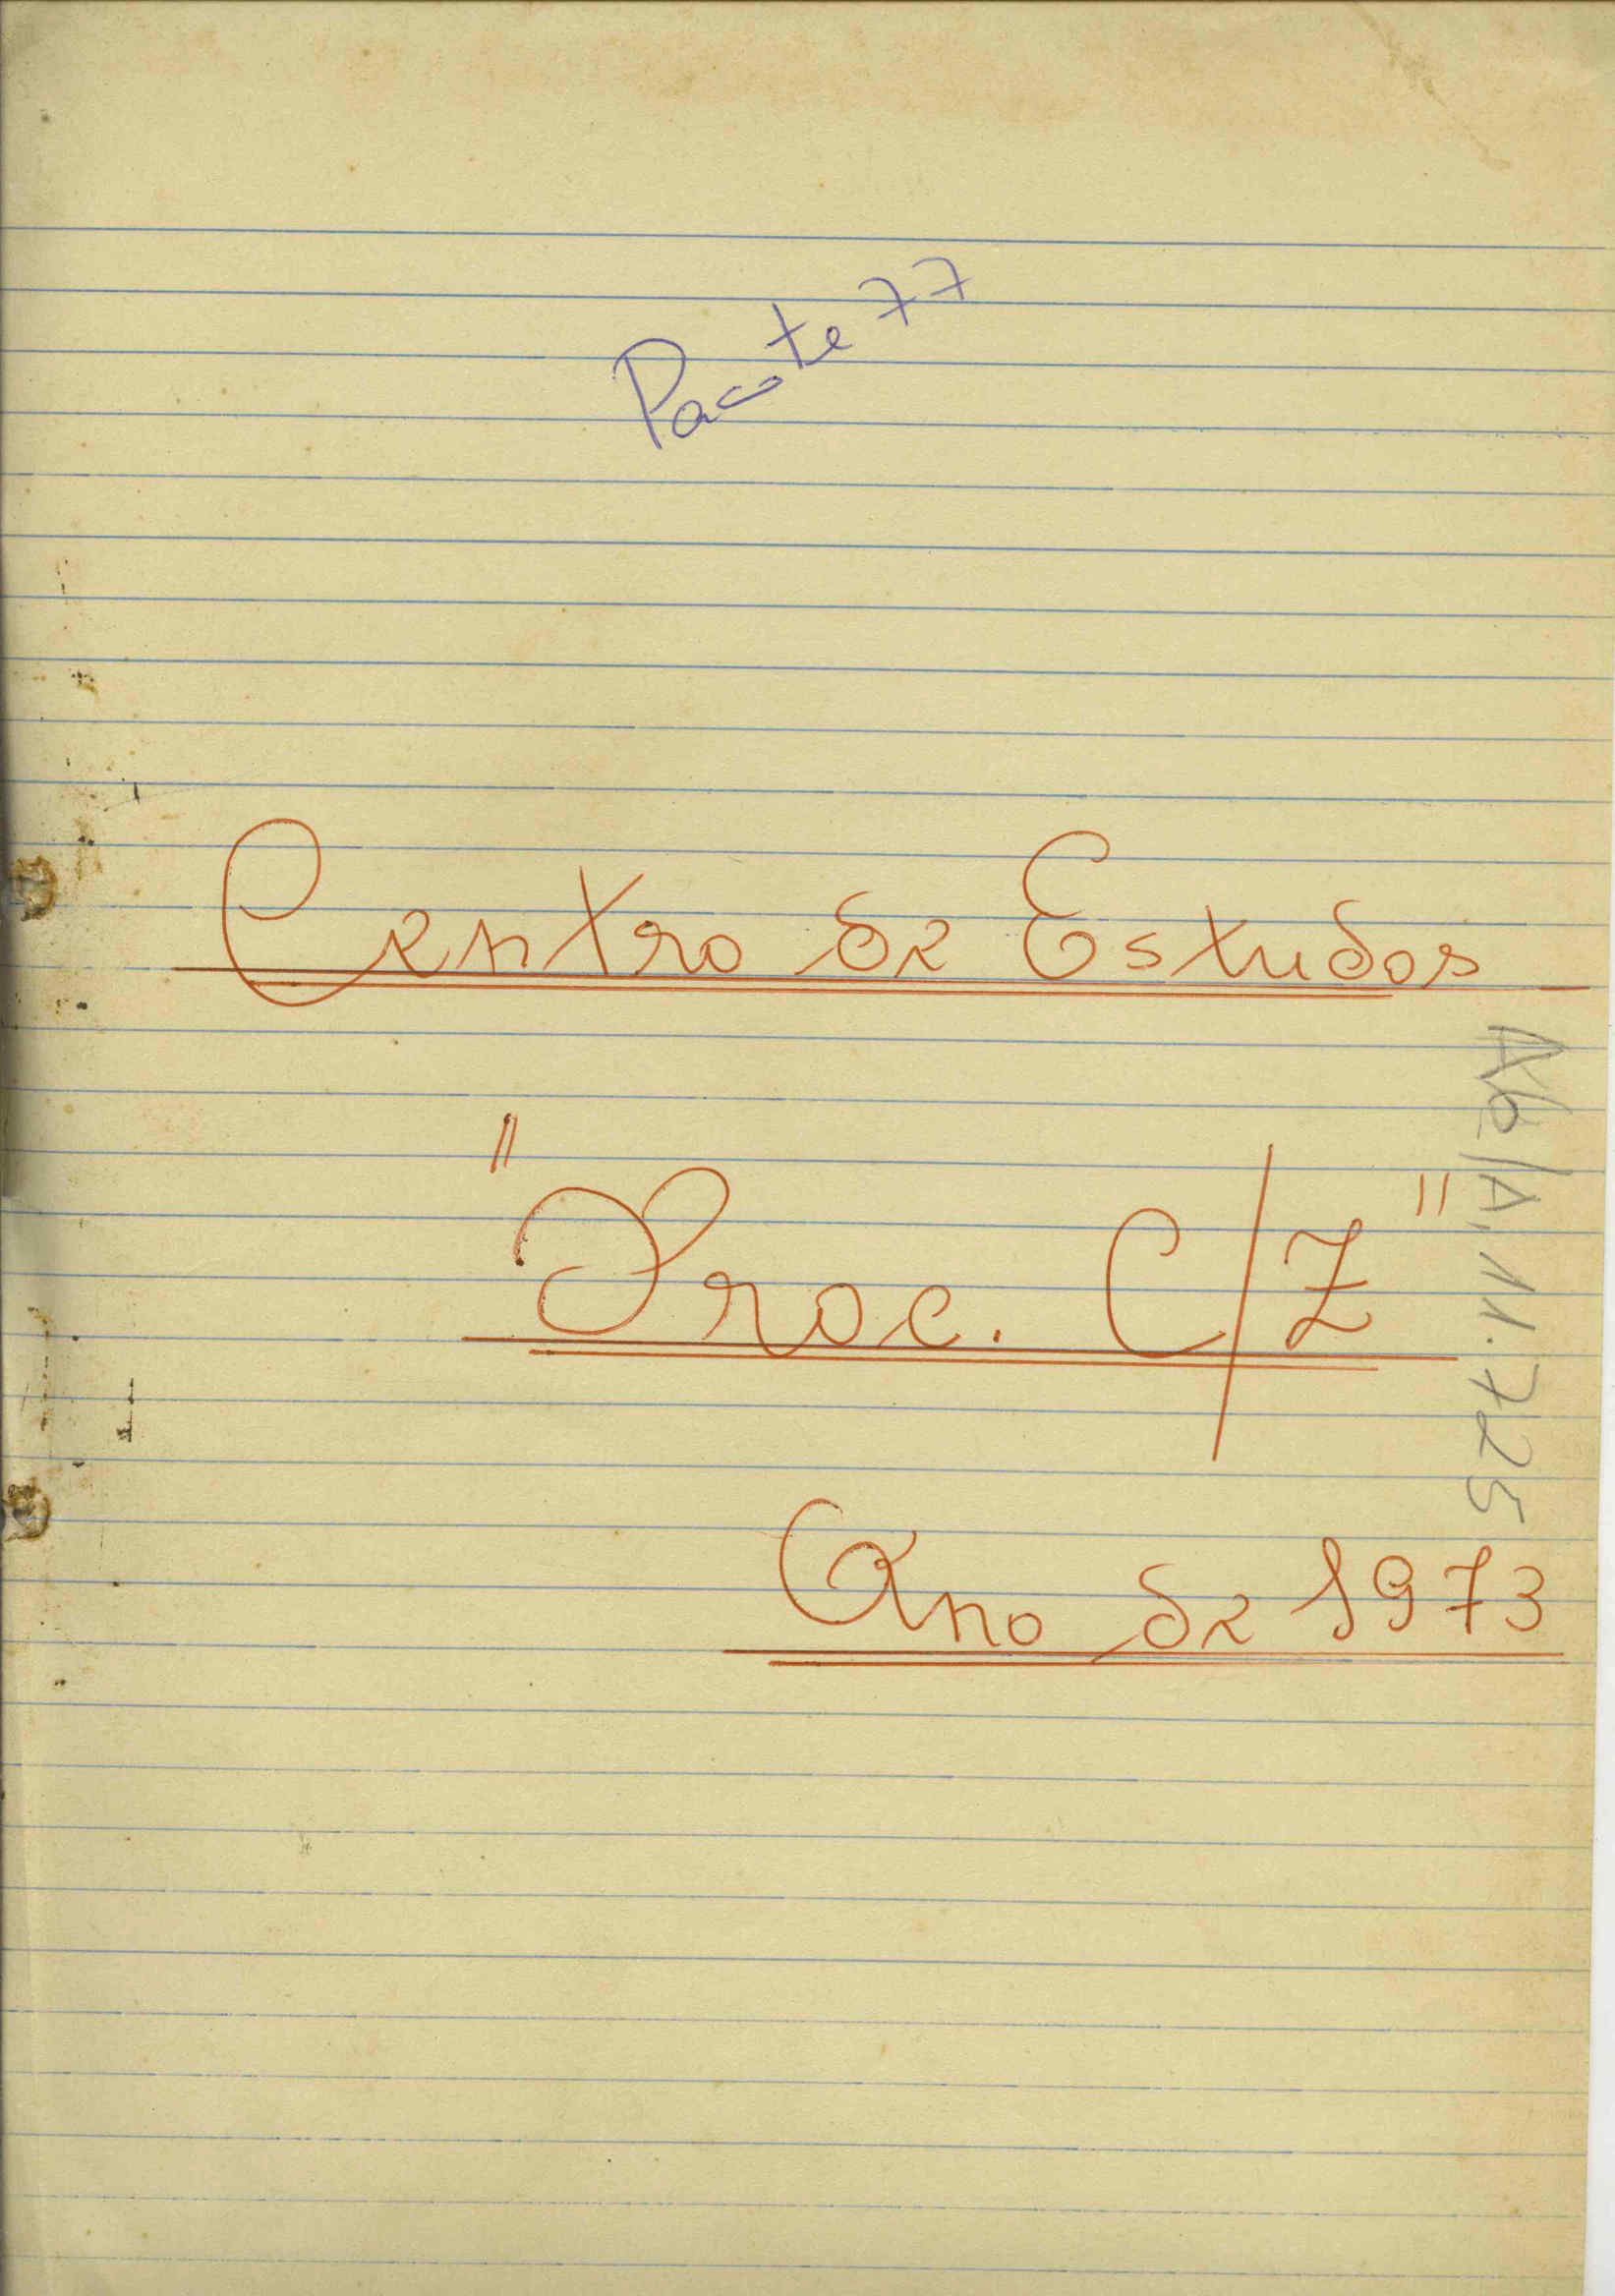 Pacote 77
Centro de Estudos
"Proc. C/Z"
Ab/A.11.725
Ano de 1973